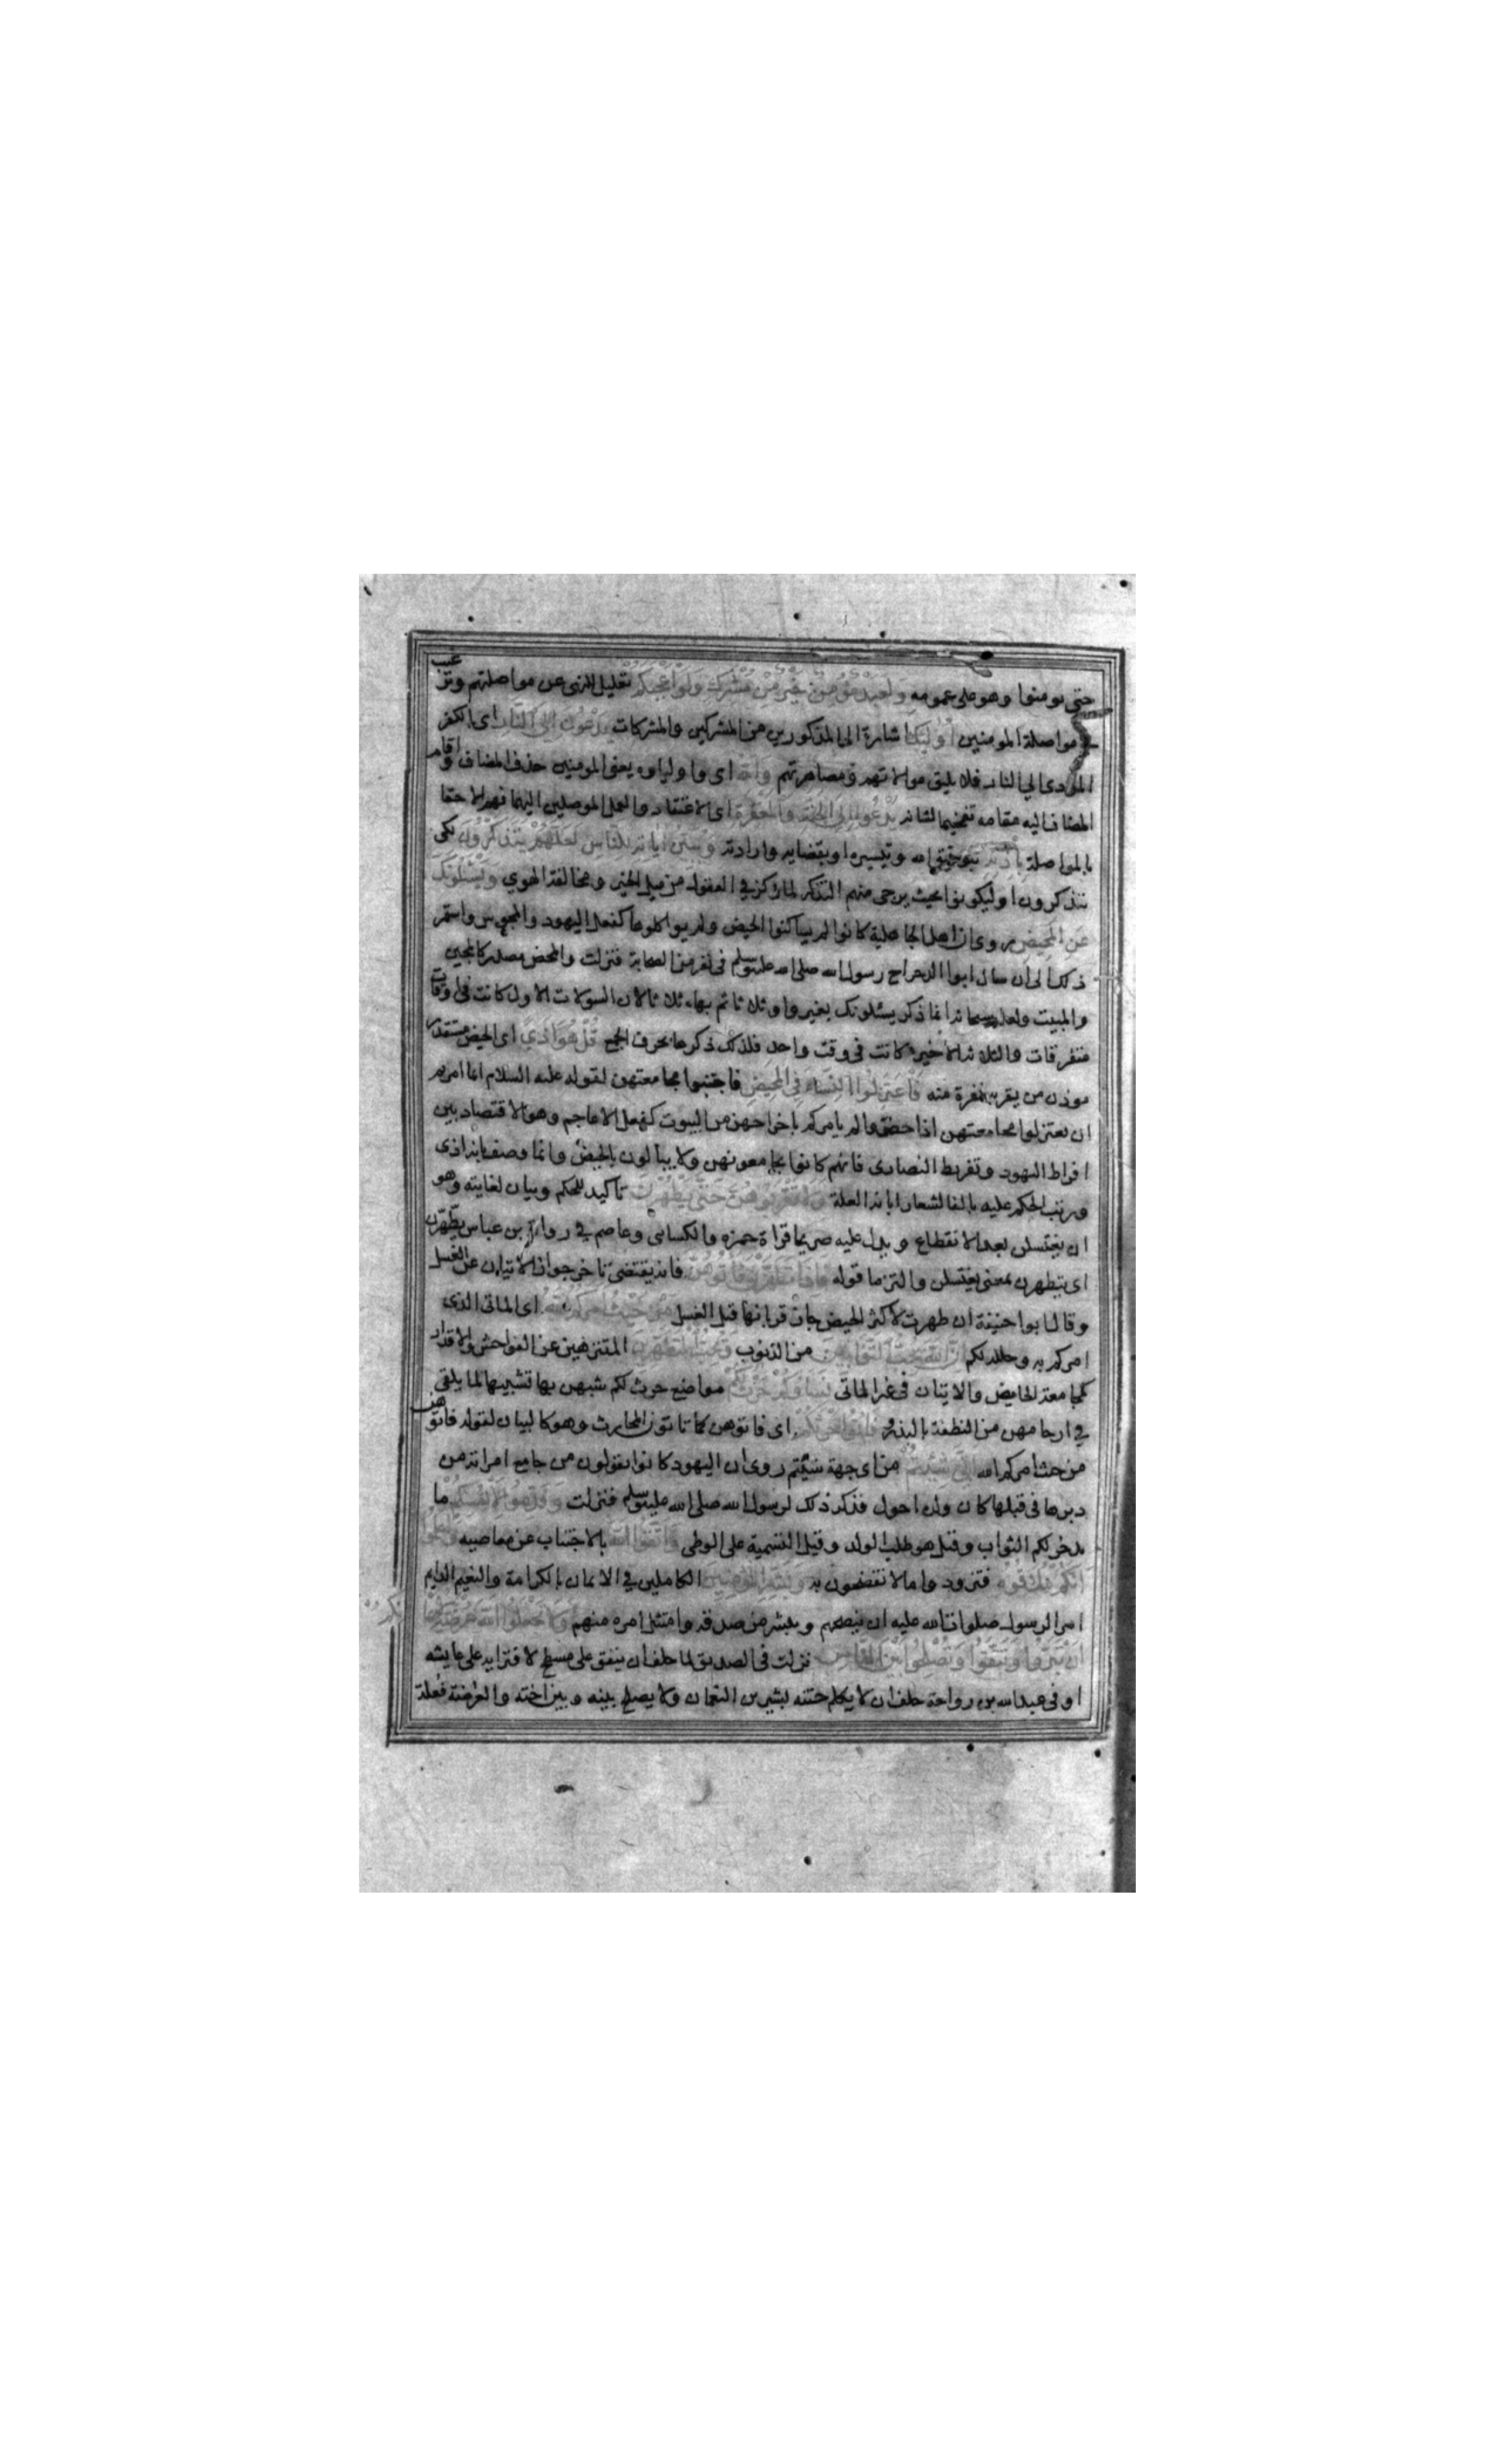 حتى يومنوا وهو على عمومه ولعبد مؤمن خير من مشرك ولو اعجبكم تعليل للنهى عن مواصلتهم وترغيب
في مواصلة المومنين أولئك اشارة الى المذكورين من المشركين والمشركات يدعون إلى النار اى الكفر
المودى الى النار فلا يليق موالاتهم ومصاهرتهم والله اى واولياوه يعنى المومنين حذف المضاف واقام
المضاف اليه مقامه تفخيما لشانه يدعو إلى الجنة والمغفرة اى الاعتقاد والعمل الموصلين اليهما فهم الاحقا
بالمواصلة بإذنه بتوفيق الله وتيسيره او بقضايه وارادته ويبين آياته للناس لعلهم يتذكرون لكى
يتذكروا او ليكونوا بحيث يرجى منهم التذكر لما ركز في العقول من ميل الخير ومخالفة الهوي ويسئلونك
عن المحيض روى ان اهل الجاهلية كانوا لم يساكنوا الحيض ولم يواكلوها كفعل اليهود والمجوس واستمر
ذلك الى ان سال ابوا الدحداح رسول الله صلى الله عليه وسلم فى نفر من الصحابة فنزلت والمحيض مصدر كالمجئ
والمبيت ولعله سبحانه انما ذكر يسئلونك بغير واو ثلاثا ثم بها ثلاثا لان السوالات الاول كانت فى اوقات
متفرقات والثلاثة الاخيرة كانت فى وقت واحد فلذلك ذكرها بحرف الجمع قل هو أذى اى الحيض مستقذر
موذى من يقربه نفرة منه فاعتزلوا النساء في المحيض فاجتنبوا مجامعتهن لقوله عليه السلام انما امرتم
ان تعتزلوا مجامعتهن اذا حضن ولم يامركم باخراجهن من البيوت كفعل الاعاجم وهو الاقتصاد بين
افراط اليهود وتفريط النصارى فانهم كانوا يجامعونهن ولا يبالون بالحيض وانما وصفه بانه اذى
ورتب الحكم عليه بالفا اشعارا بانه العلة ولا تقربوهن حتى يطهرن تاكيد للحكم وبيان لغايته وهو
ان يغتسلن بعد الانقطاع ويدل عليه صريحا قراة حمزه والكسائى وعاصم في رواية بن عباس يطّهرن
اى يتطهرن بمعنى يغتسلن والتزاما قوله فإذا تطهرن فأتوهن فانه يقتضى تاخر جواز الاتيان عن الغسل
وقال ابوا حنيفة ان طهرت لاكثر الحيض جاز قربانها قبل الغسل من حيث أمركم الله اى الماتى الذى
امركم به وحلله لكم إن الله يحب التوابين من الذنوب ويحب المتطهرين المتنزهين عن الفواحش والاقذار
كمجامعة الحايض والاتيان فى غير الماتى نساؤكم حرث لكم مواضع حرث لكم شبههن بها تشبيها لما يلقى
في ارحامهن من النطفة بالبذر فأتوا حرثكم اى فاتوهن كما تاتون المحارث وهو كالبيان لقوله فاتوهن
من حيث امركم الله أنى شئتم من اى جهة شيتم روى ان اليهود كانوا يقولون من جامع امراته من
دبرها فى قبلها كان ولده احول فذكر ذلك لرسول الله صلى الله عليه وسلم فنزلت وقدموا لأنفسكم ما
يدخر لكم الثواب وقيل هو طلب الولد وقيل التسمية على الوطى واتقوا الله بالاجتناب عن معاصيه واعلموا
أنكم ملاقوه فتزودوا ما لا تفتضحون به وبشر المؤمنين الكاملين في الايمان بالكرامة والنعيم الدايم
امر الرسول صلوات الله عليه ان ينصحهم ويبشر من صدقه وامتثل امره منهم ولا تجعلوا الله عرضة لأيمانكم
أن تبروا وتتقوا وتصلحوا بين الناس نزلت فى الصديق لما حلف ان ينفق على مسطح لافترايه على عايشه
او فى عبد الله بن رواحة حلف ان لا يكلم ختنه بشير بن النعمان ولا يصلح بينه وبين اخته والعرضة فعلة